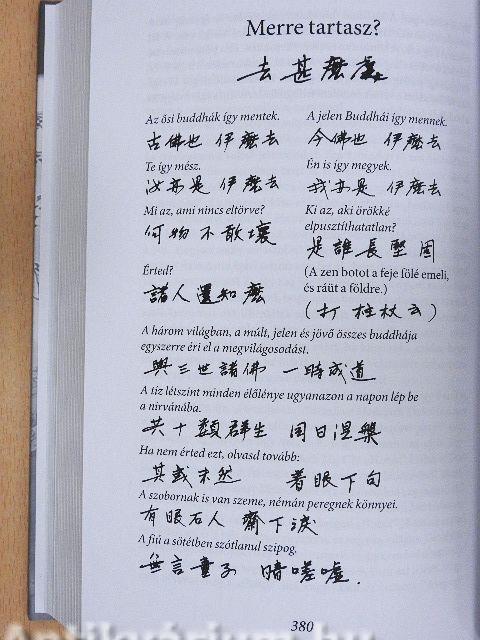 Merre tartasz?
去甚麽處
Az ősi buddhák így mentek.
A jelen Buddhái így mennek.
古佛也 伊麽去
今佛也 伊麽去
Te így mész.
Én is így megyek.
汝亦是 伊麽去
我亦是 伊麽去
Mi az, ami nincs eltörve?
Ki az, aki örökké
elpusztíthatatlan?
何物不敢壞
是誰長堅固
Érted?
(A zen botot a feje fölé emeli,
és ráüt a földre.)
諸人還知麽
(打柱杖云)
A három világban, a múlt, jelen és jövő összes buddhája
egyszerre éri el a megvilágosodást.
與三世諸佛 一時成道
A tíz létszint minden élőlénye ugyanazon a napon lép be
a nirvánába.
共十類群生 同日涅槃
Ha nem érted ezt, olvasd tovább:
其或未然 着眼下句
A szobornak is van szeme, némán peregnek könnyei.
有眼石人 齋下淚
A fiú a sötétben szótlanul szipog.
無言童子 暗嗟噓.
380